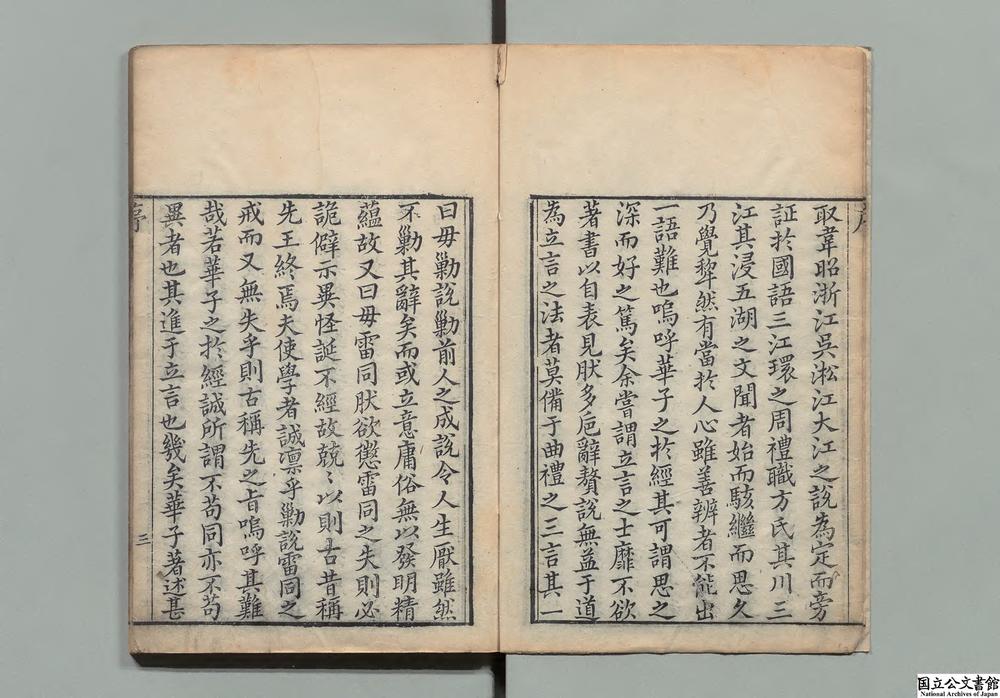 序
取韋昭浙江吳淞江大江之說為定而旁
証於國語三江環之周禮職方氏其川三
江其浸五湖之文聞者始而駭繼而思久
乃覺犂然有當於人心雖善辨者不能出
一語難也嗚呼華子之於經其可謂思之
深而好之篤矣余嘗謂立言之士靡不欲
著書以自表見肰多巵辭贅說無益于道
為立言之法者莫備于曲禮之三言其一
曰毋勦說勦前人之成說令人生厭雖然
不勦其辭矣而或立意庸俗無以發明精
蘊故又曰毋雷同肰欲懲雷同之失則必
詭僻示異怪誕不經故兢〻以則古昔稱
先王終焉夫使學者誠凛乎勦說雷同之
戒而又無失乎則古稱先之旨嗚呼其難
哉若華子之於經誠所謂不苟同亦不苟
異者也其進于立言也幾矣華子著述甚
序
三
国立公文書館
National Archives of Japan